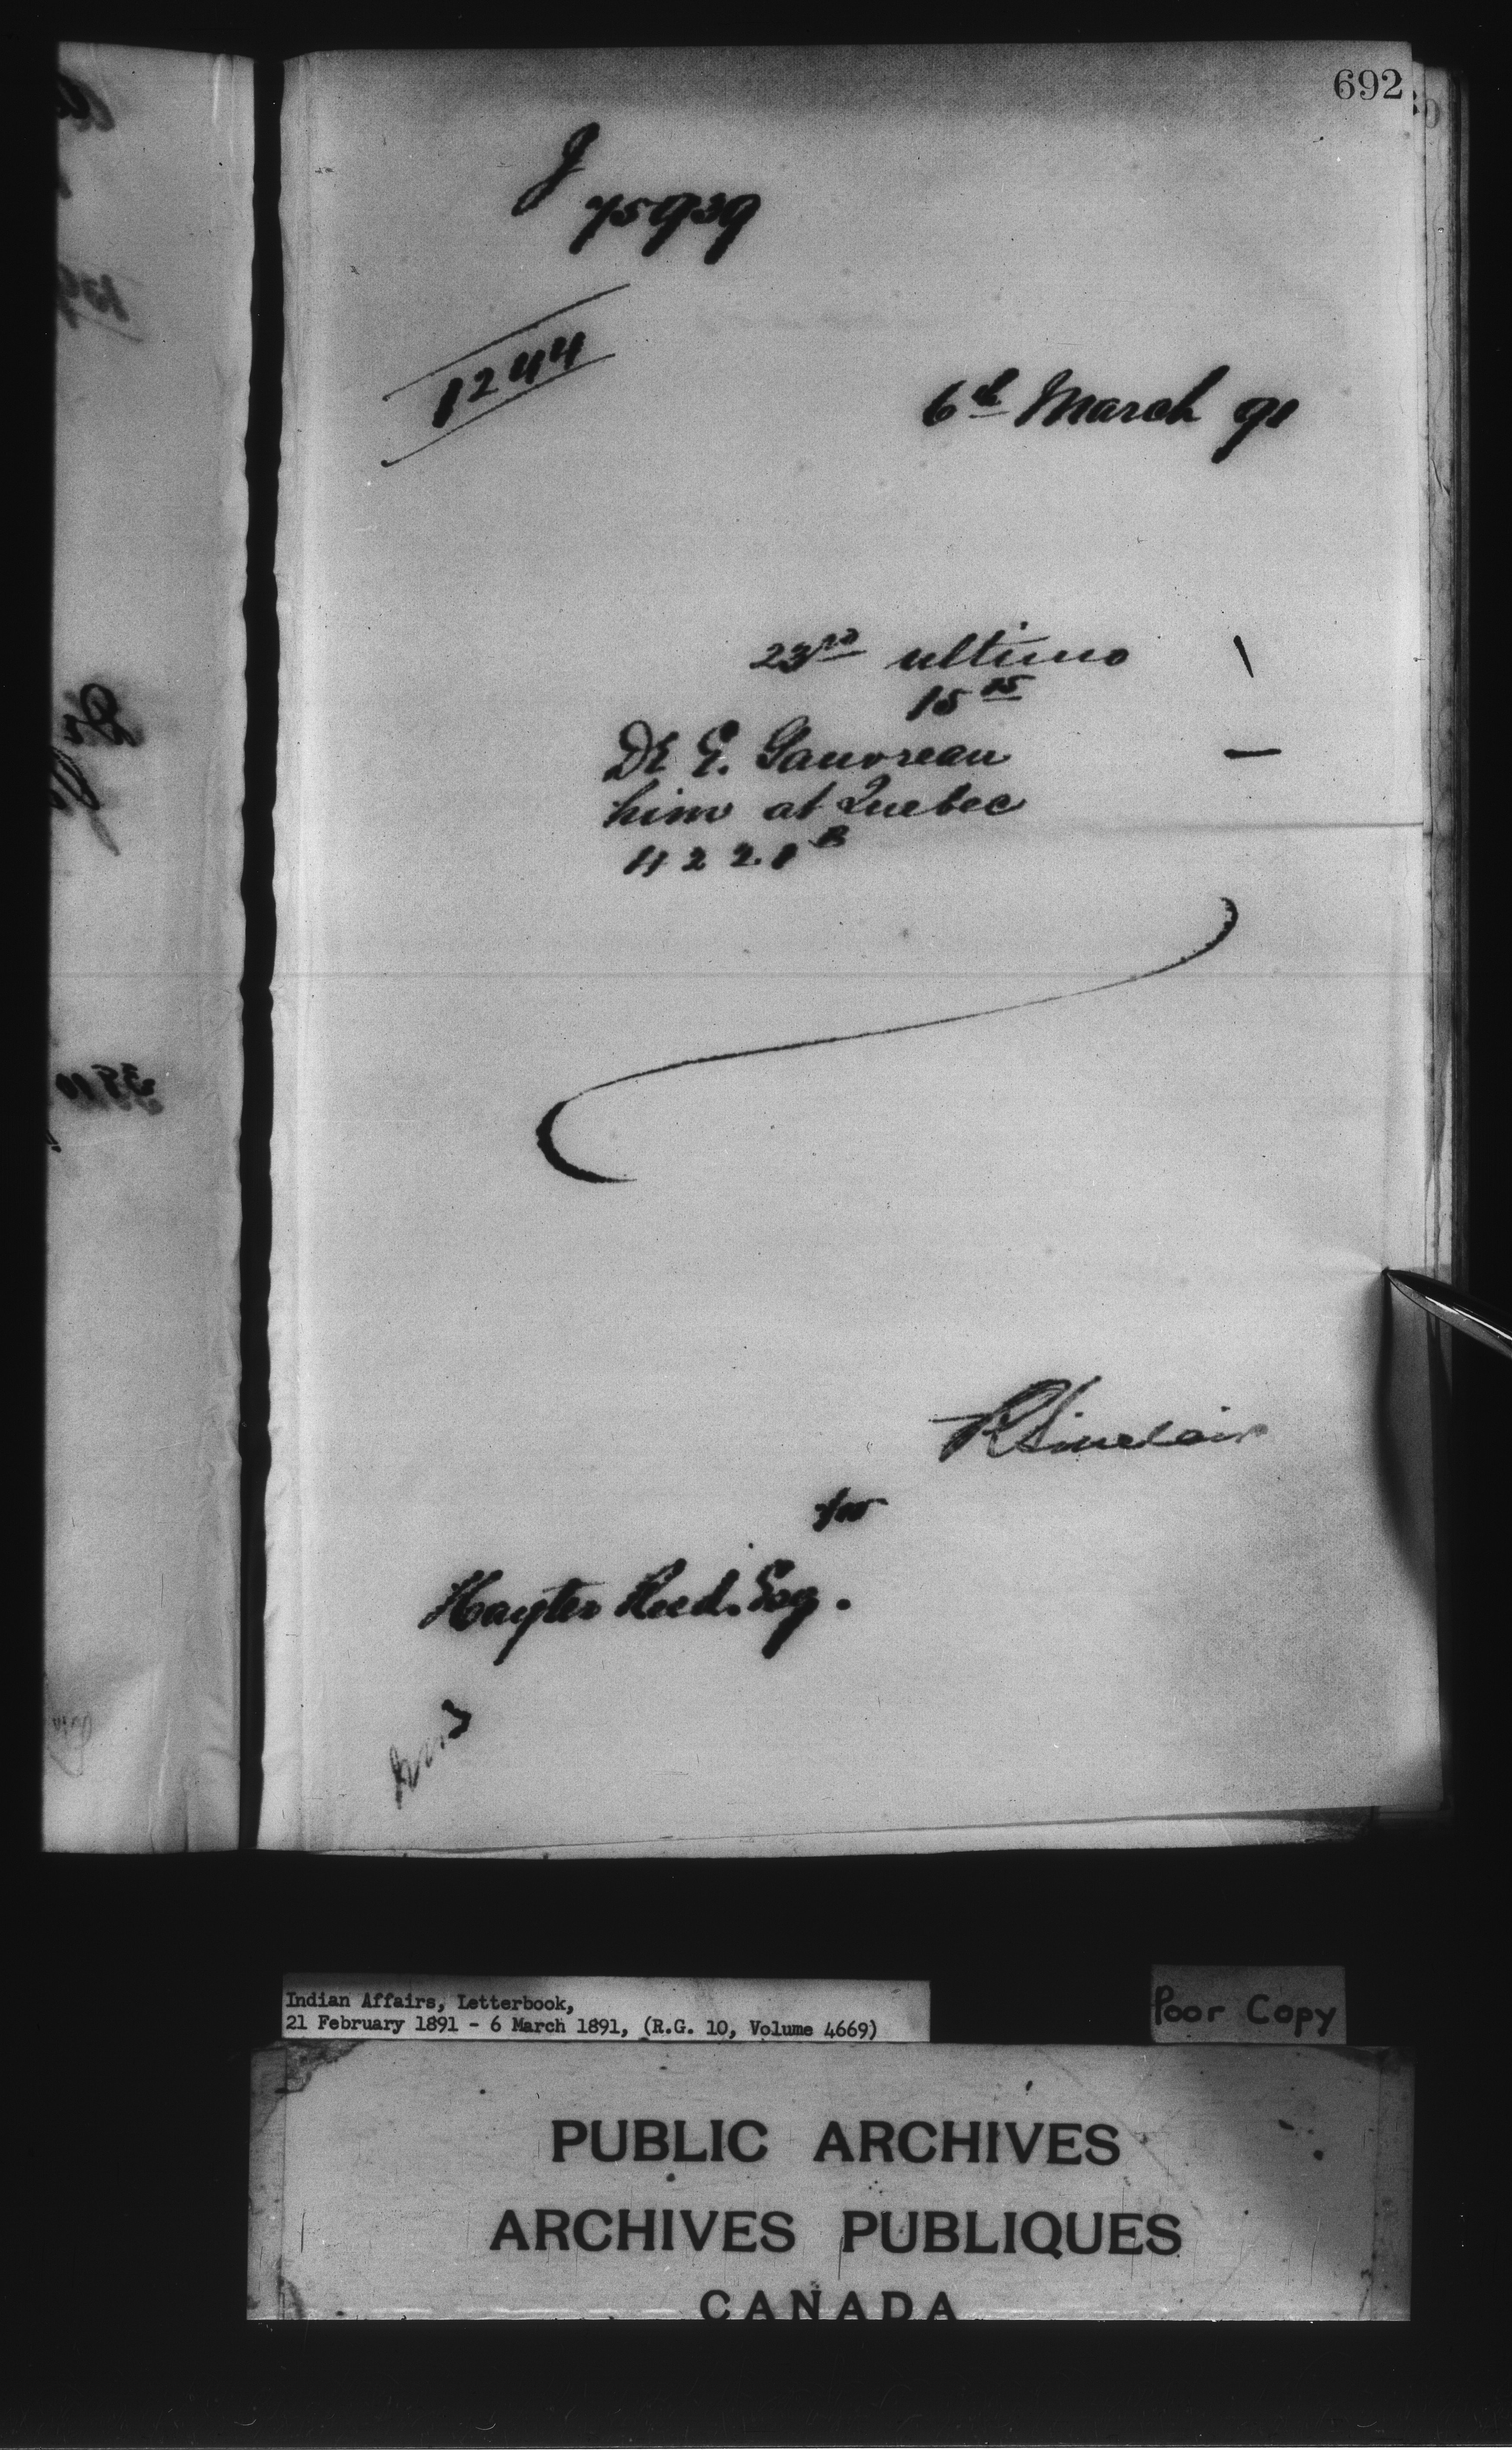 692
J
75939
1244
6th March 91
23rd ultimo
15th
Dr E. Gauvreau
him at Quebec
4221 B
R Sinclair
for
Hayter Reed. Esq.
Indian Affairs, Letterbook,
21 February 1891 - 6 March 1891, (R.G. 10, Volume 4669)
Poor Copy
PUBLIC ARCHIVES
ARCHIVES PUBLIQUES
CANADA